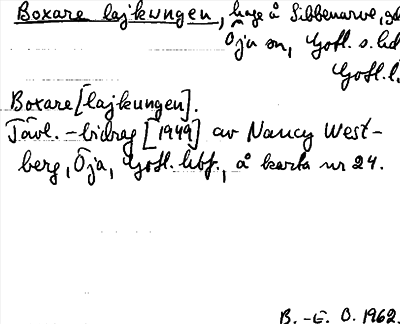 Boxare lajkungen, hage å Sibbenarve,
Öja sn, Gotl. s. hd
Gotl. l.
Boxare [lajkungen].
Tävl.-bidrag [1949] av Nancy West-
berg, Öja, Gotl. hbf., å karta nr 24.
B.-E. O. 1962.